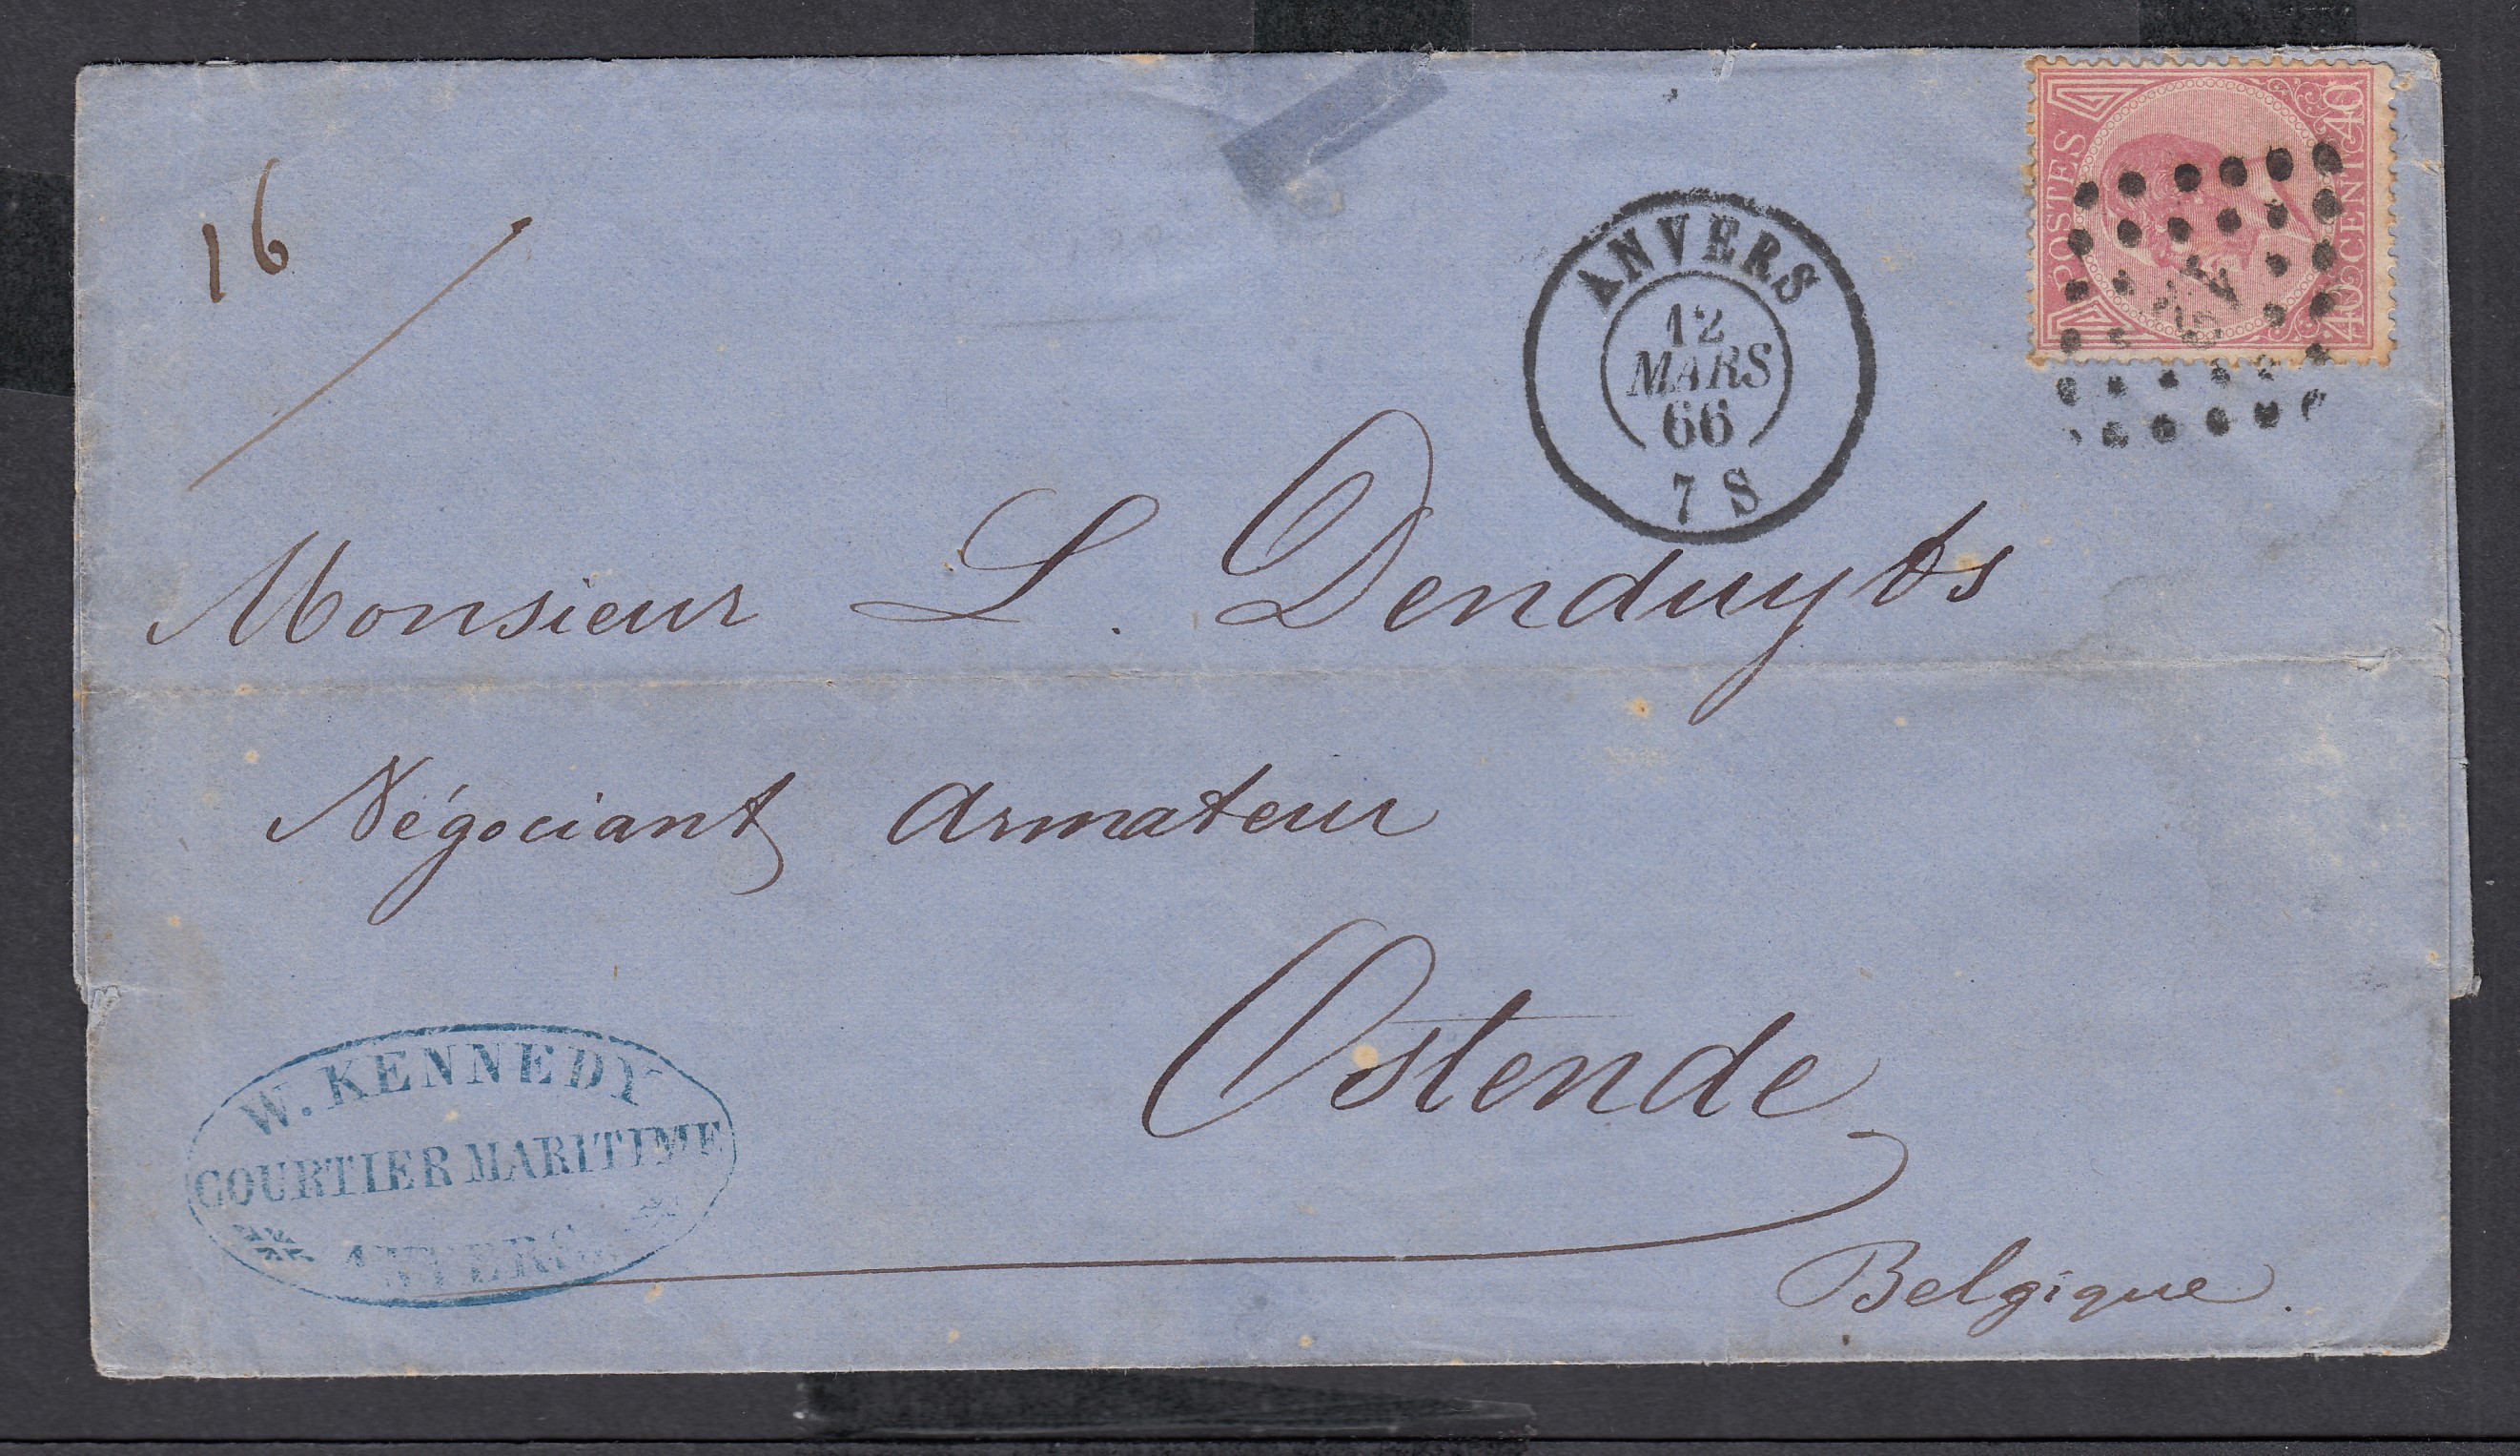 16
ANVERS
12
MARS
66
7 S
POSTES
40 CENT. 40
Monsieur L. Denduyts
Négociant Armateur
Ostende
Belgique.
W. KENNEDY
COURTIER MARITIME
ANVERS